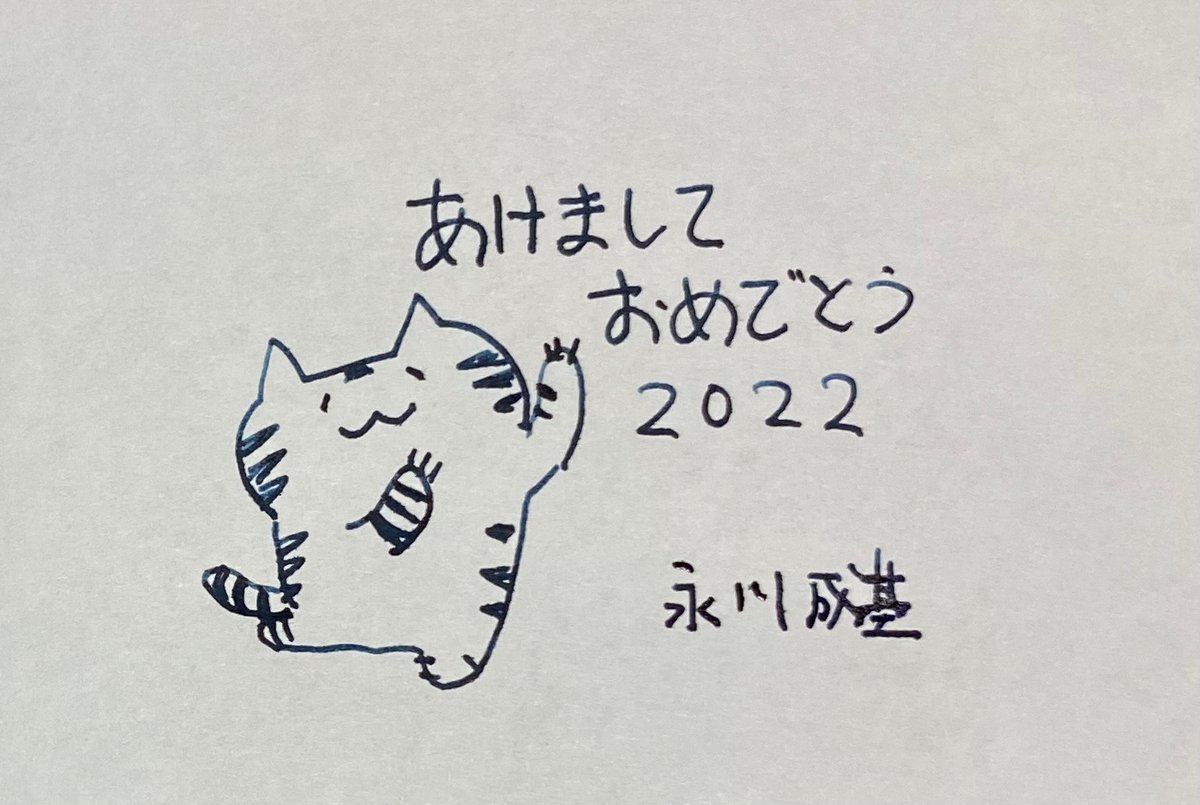 あけまして
おめでとう
2022
永川成基